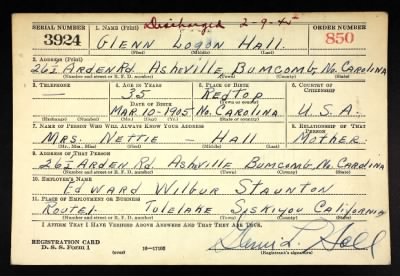 Discharged 2-9-45
SERIAL NUMBER 1. NAME (Print) ORDER NUMBER
3924 GLENN LOGON HALL 850
(First) (Middle) (Last)
2. ADDRESS (Print)
261 ARDEN RD. ASHEVILLE BUMCOMB, NO. CAROLINA
(Number and street or R. F. D. number) (Town) (County) (State)
3. TELEPHONE 4. AGE IN YEARS 5. PLACE OF BIRTH 6. COUNTRY OF CITIZENSHIP
— 35 REDTOP
DATE OF BIRTH (Town or county)
MAR. 10-1905 NO. CAROLINA U.S.A.
(Exchange) (Number) (Mo.) (Day) (Yr.) (State or country)
7. NAME OF PERSON WHO WILL ALWAYS KNOW YOUR ADDRESS 8. RELATIONSHIP OF THAT PERSON
MRS. NETTIE — HALL MOTHER
(Mr., Mrs., Miss) (First) (Middle) (Last)
9. ADDRESS OF THAT PERSON
261 ARDEN RD. ASHVILLE BUMCOMB, NO. CAROLINA
(Number and street or R. F. D. number) (Town) (County) (State)
10. EMPLOYER'S NAME
EDWARD WILBUR STAUNTON
11. PLACE OF EMPLOYMENT OR BUSINESS
ROUTE 1. TULELAKE SISKIYOU CALIFORNIA
(Number and street or R. F. D. number) (Town) (County) (State)
I AFFIRM THAT I HAVE VERIFIED ABOVE ANSWERS AND THAT THEY ARE TRUE.
REGISTRATION CARD
D. S. S. Form 1 (over) 16—17105 Glenn L. Hall
(Registrant's signature)